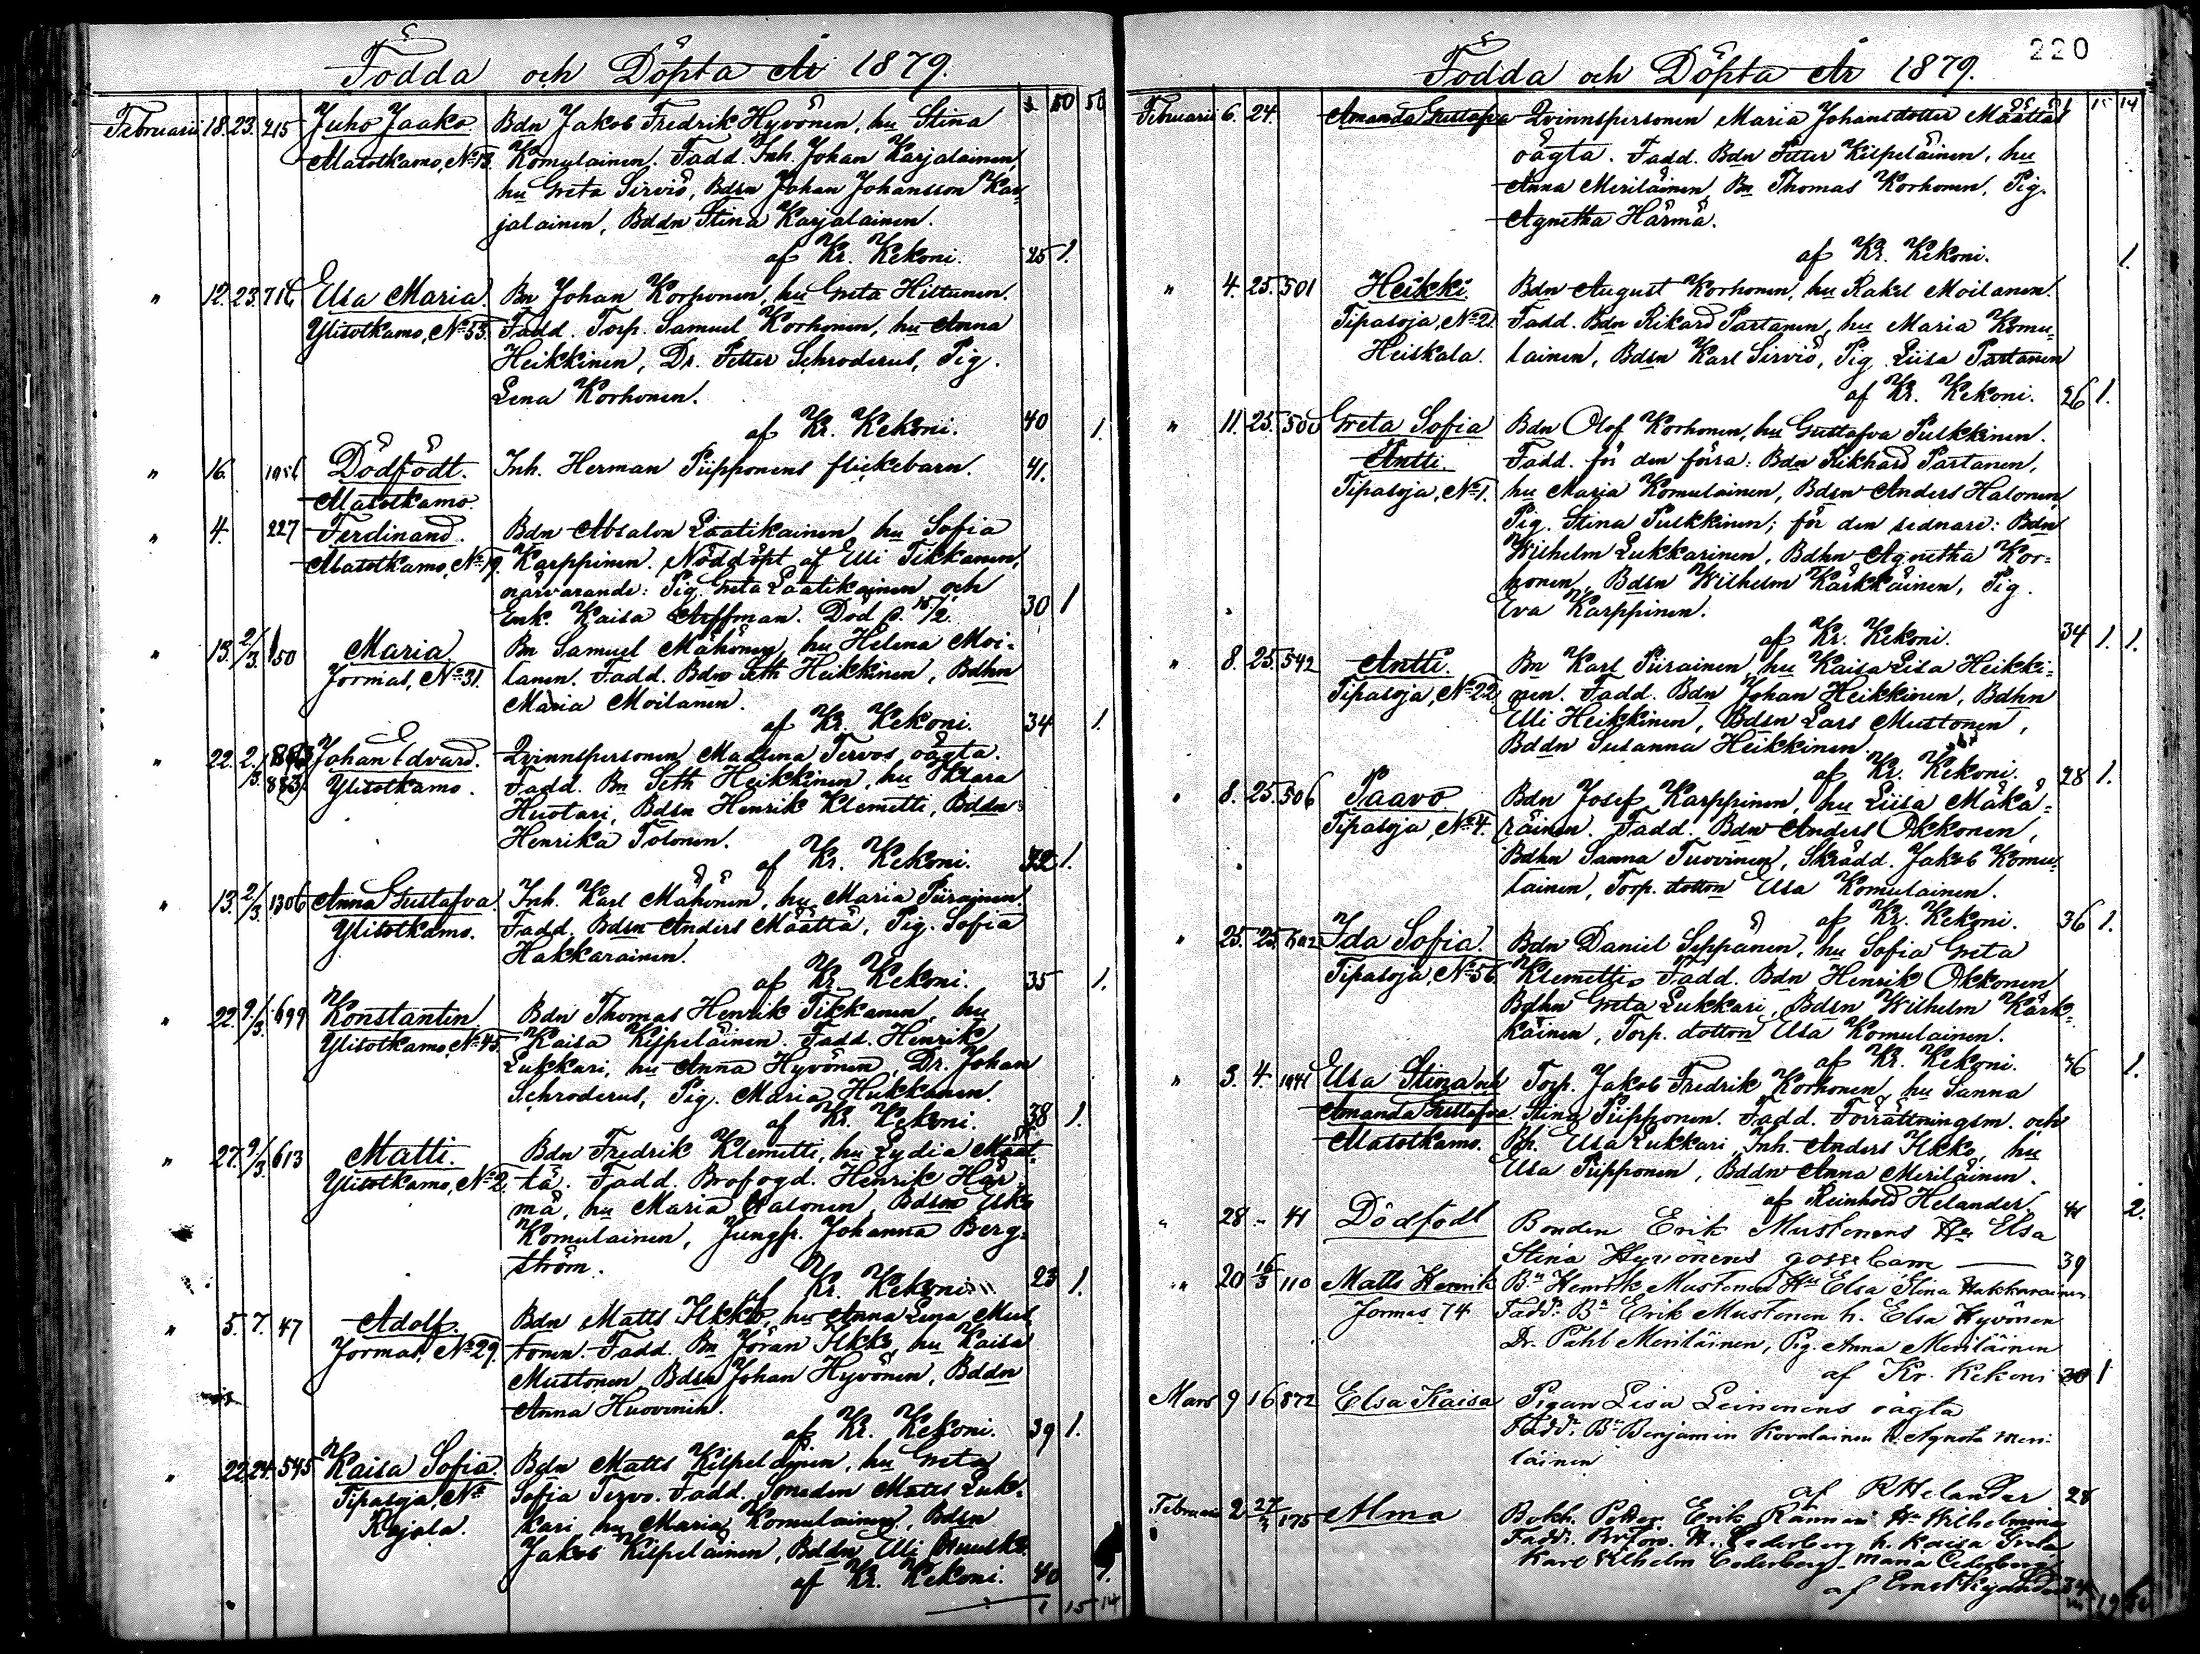 Födda och Döpta År 1879.
Februarii 18. 23. 215 Juho Jaako. Bdn Jakob Fredrik Hyvönen, hu Stina
Matotkamo, No 13. Komulainen. Fadd. Inh. Johan Karjalainen,
hu Greta Sirviö, Bdsn Johan Johansson Kar-
jalainen, Bddn Stina Karjalainen.
af Kr. Kekoni. 25 1.
" 12. 23. 716 Elsa Maria. Bn Johan Korhonen, hu Greta Hiltunen.
Ylisotkamo, No 53. Fadd. Torp. Samuel Korhonen, hu Anna
Heikkinen, Dr. Petter Schroderus, Pig.
Lena Korhonen.
af Kr. Kekoni. 40 1.
" 16. 1956 Dödfödt. Inh. Herman Piipponens flickebarn. 41.
Matotkamo.
" 4. 227 Ferdinand. Bdn Absalon Laatikainen, hu Sofia
Matotkamo, No 19. Karppinen. Nöddöpt af Elli Tikkanen,
närvarande: Pig. Greta Laatikainen och
Enk. Kaisa Arffman. Död d. 15/2. 30 1
" 13. 2/3. 150 Maria Bn Samuel Mähönen, hu Helena Moi-
Jormas, No 31. lanen. Fadd. Bdn Seth Heikkinen, Bdhn
Maria Moilanen.
af Kr. Kekoni. 34 1.
" 22. 2./3. 883 Johan Edvard. Qvinnspersonen Madlena Tervos oägta.
Ylisotkamo. Fadd. Bn Seth Heikkinen, hu Klara
Huotari, Bdsn Henrik Klemetti, Bddn
Henrika Tolonen.
af Kr. Kekoni. 32 1.
" 13. 2/3. 1306 Anna Gustafva. Inh. Karl Mähönen, hu Maria Piirainen.
Ylisotkamo. Fadd. Bdsn Anders Määttä, Pig. Sofia
Hakkarainen.
af Kr. Kekoni. 35 1.
" 22. 9/3. 699 Konstantin Bdn Thomas Henrik Tikkanen, hu
Ylisotkamo, No 45. Kaisa Kilpeläinen. Fadd. Henrik
Lukkari, hu Anna Hyvönen, Dr. Johan
Schroderus, Pig. Maria Hukkanen.
af Kr. Kekoni. 38 1.
" 27. 9/3. 613 Matti. Bdn Fredrik Klemetti, hu Lydia Määt-
Ylisotkamo, No 2. tä. Fadd. Brofogd. Henrik Här-
mä, hu Maria Halonen, Bdsn Esko
Komulainen, Jungfr. Johanna Berg-
ström.
af Kr. Kekoni. 23 1.
" 5. 7. 47 Adolf. Bdn Matts Ikko, hu Anna Lena Mus-
Jormas, No 29. tonen. Fadd. Bn Jöran Ikko, hu Kaisa
Mustonen, Bdsn Johan Hyvönen, Bddn
Anna Huovinen.
af Kr. Kekoni. 39 1.
" 22. 24. 545 Kaisa Sofia. Bdn Matts Kilpeläinen, hu Greta
Tipasoja, No Sofia Tervo. Fadd. Sonedon Matts Luk-
Rajala. kari, hu Maria Komulainen, Bdsn
Jakob Kilpeläinen, Bddn Elli Ruuska.
af Kr. Kekoni. 40 1.
1 15 14
Födda och Döpta År 1879. 220
1 15 14
Februarii 6. 24. Amanda Gustafva Qvinnspersonen Maria Johansdotter Määttäs
oägta. Fadd. Bdn Petter Kilpeläinen, hu
Anna Meriläinen, Bn Thomas Korhonen, Pig.
Agnetha Härmä.
af Kr. Kekoni. 1.
" 4. 25. 501 Heikki. Bdn August Korhonen, hu Rakel Moilanen.
Tipasoja, No 2. Fadd. Bdn Rikard Partanen, hu Maria Komu-
Heiskala. lainen, Bdsn Karl Sirviö, Pig. Liisa Partanen
af Kr. Kekoni. 26 1.
" 11. 25. 500 Greta Sofia Bdn Olof Korhonen, hu Gustafva Pulkkinen.
Antti. Fadd. för den förra: Bdn Rikhard Partanen,
Tipasoja, No 1. hu Maria Komulainen, Bdsn Anders Halonen
Pig. Stina Pulkkinen; för den sednare: Bdn
Wilhelm Lukkarinen, Bdhn Agnetha Kor-
honen, Bdsn Wilhelm Kärkkäinen, Pig.
Eva Karppinen.
af Kr. Kekoni. 34 1. 1.
" 8. 25. 542 Antti. Bn Karl Piirainen, hu Kaisa Lisa Heikki-
Tipasoja, No 22. nen. Fadd. Bdn Johan Heikkinen, Bdhn
Elli Heikkinen, Bdsn Lars Mustonen,
Bddn Susanna Heikkinen.
af Kr. Kekoni. 28 1.
" 8. 25. 506 Paavo. Bdn Josef Karppinen, hu Liisa Mäkä-
Tipasoja, No 4. räinen. Fadd. Bdn Anders Okkonen,
Bdhn Sanna Tuovinen, Skrädd. Jakob Komu-
lainen, Torp. dotton Elsa Komulainen.
af Kr. Kekoni. 36 1.
" 25. 25. 602 Ida Sofia. Bdn Daniel Seppänen, hu Sofia Greta
Tipasoja, No 56. Klemetti. Fadd. Bdn Henrik Okkonen
Bdhn Greta Lukkari, Bdsn Wilhelm Kärk-
käinen, Torp. dotton Elsa Komulainen.
af Kr. Kekoni. 36 1.
" 3. 4. 1941 Elsa Stina och Torp. Jakob Fredrik Korhonen, hu Sanna
Amanda Gustafva. Stina Piipponen. Fadd. Förrättningsm. och
Matotkamo. Ph. Elsa Lukkari, Inh. Anders Ikko, hu
Elsa Piipponen, Bddn Anna Meriläinen.
af Reinhold Helander. 41 2.
" 28 - 41 Dödfödt Bonden Erik Mustonens Hu Elsa
Stina Hyvönens gossebarn 39
" 20 16/3 110 Matts Henrik Bn Henrik Mustonen Hu Elsa Stina Hakkarainen
Jormas 74 Fadd. Bn Erik Mustonen h. Elsa Hyvönen
Dr. Påhl Meriläinen, Pig. Anna Meriläinen
af Kr. Kekoni 30 1
Mars 9 16 872 Elsa Kaisa Pigan Lisa Leinonens oägta
Fadd. Bn Benjamin Kovalainen h. Agneta Meri-
läinen
af R Helander 28
Februarii 2 27/3 175 Alma Bokh. Petter Erik Rännäri Hu Wilhelmina
Fadd. H. Cederberg h. Kaisa Greta
Karl Wilhelm Cederberg, Maria Cederberg
af Ernst Kyander 34